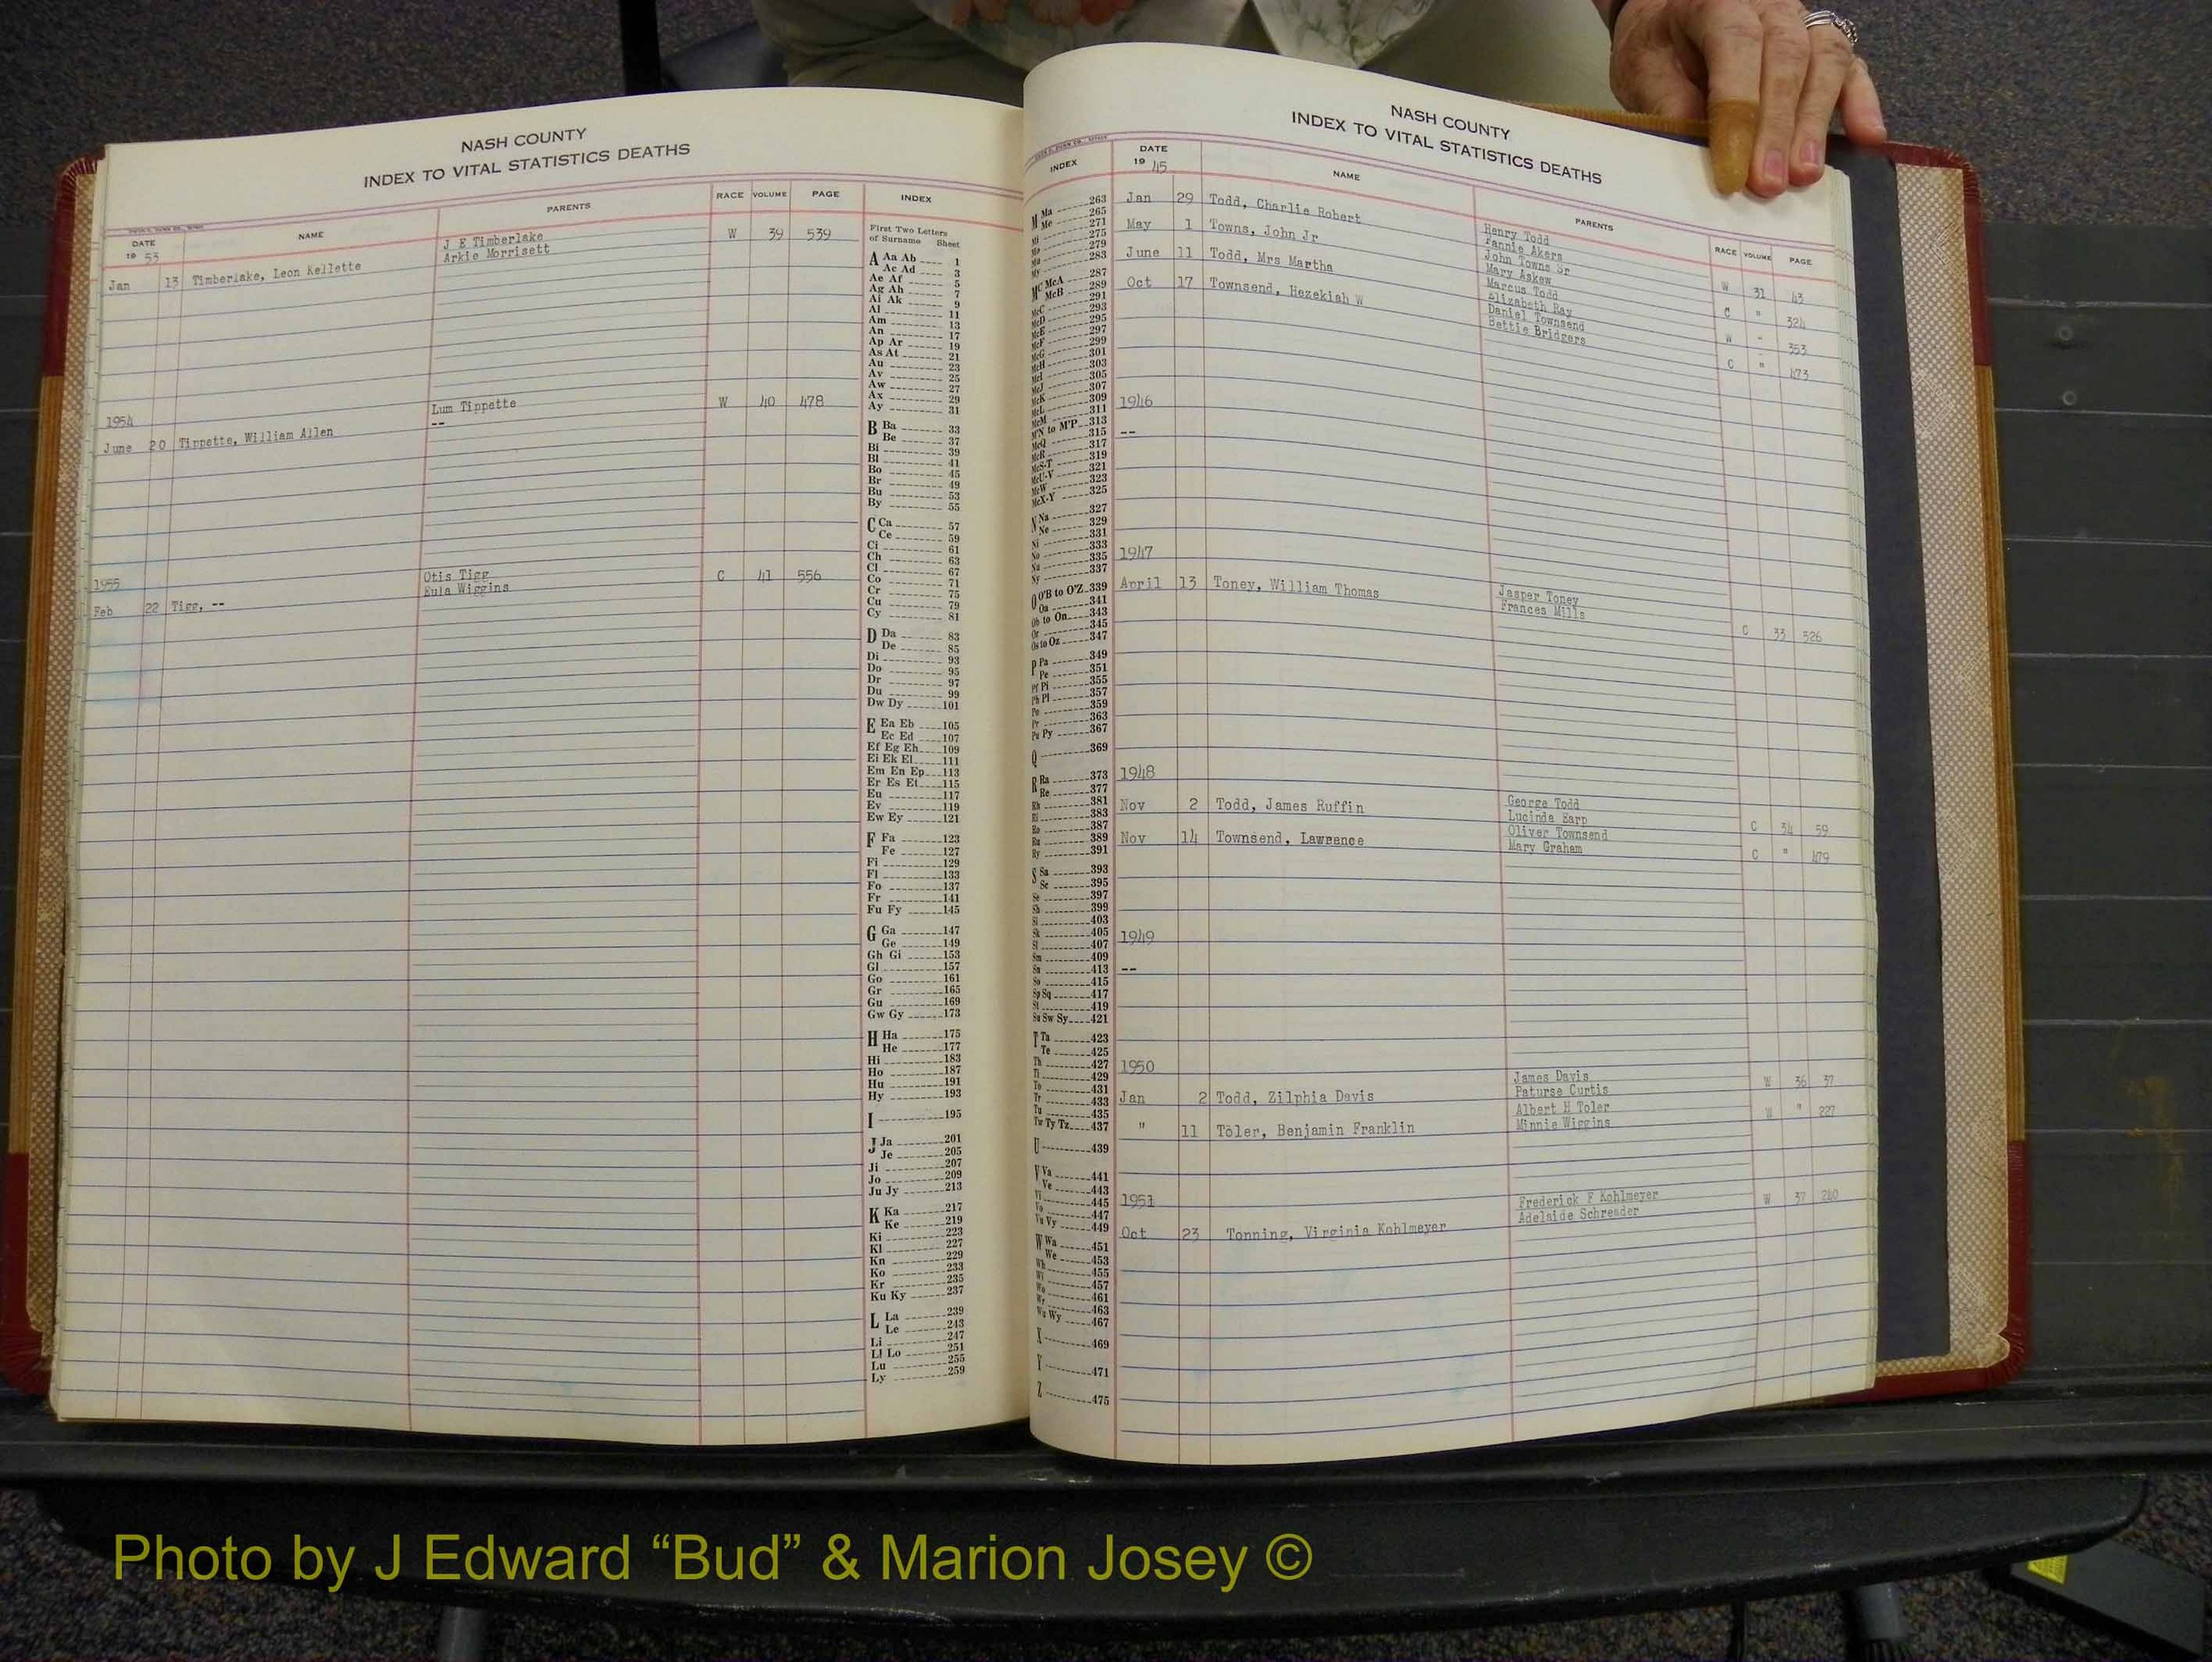 NASH COUNTY
INDEX TO VITAL STATISTICS DEATHS
DATE NAME PARENTS RACE VOLUME PAGE INDEX
19 53
J E Timberlake W 39 539
Arkie Morrisett
Jan 13 Timberlake, Leon Kellette
Lum Tippette W 40 478
1954 --
June 20 Tippette, William Allen
Otis Tigg C 41 556
1955 Eula Wiggins
Feb 22 Tigg, --
First Two Letters
of Surname Sheet
A Aa Ab 1
Ac Ad 3
Ae Af 5
Ag Ah 7
Ai Ak 9
Al 11
Am 13
An 17
Ap Ar 19
As At 21
Au 23
Av 25
Aw 27
Ax 29
Ay 31
B Ba 33
Be 37
Bi 39
Bl 41
Bo 45
Br 49
Bu 53
By 55
C Ca 57
Ce 59
Ci 61
Ch 63
Cl 67
Co 71
Cr 75
Cu 79
Cy 81
D Da 83
De 85
Di 93
Do 95
Dr 97
Du 99
Dw Dy 101
E Ea Eb 105
Ec Ed 107
Ef Eg Eh 109
Ei Ek El 111
Em En Ep 113
Er Es Et 115
Eu 117
Ev 119
Ew Ey 121
F Fa 123
Fe 127
Fi 129
Fl 133
Fo 137
Fr 141
Fu Fy 145
G Ga 147
Ge 149
Gh Gi 153
Gl 157
Go 161
Gr 165
Gu 169
Gw Gy 173
H Ha 175
He 177
Hi 183
Ho 187
Hu 191
Hy 193
I 195
J Ja 201
Je 205
Ji 207
Jo 209
Ju Jy 213
K Ka 217
Ke 219
Ki 223
Kl 227
Kn 229
Ko 233
Kr 235
Ku Ky 237
L La 239
Le 243
Li 247
Ll Lo 251
Lu 255
Ly 259
NASH COUNTY
INDEX TO VITAL STATISTICS DEATHS
INDEX DATE NAME PARENTS RACE VOLUME PAGE
19 45
M Ma 263
Me 265
Mi 271
275
Mo 279
Mu 283
My 287
Mc McA 289
McB 291
McC 293
McD 295
McE 297
McF 299
McG 301
McH 303
McI 305
McJ 307
McK 309
McL 311
McM 313
M'N to M'P 315
McQ 317
McR 319
McS-T 321
McU-V 323
McW 325
McX-Y
N Na 327
Ne 329
Ni 331
No 333
Nu 335
Ny 337
O O'B to O'Z 339
Oa 341
Ob to On 343
Or 345
Os to Oz 347
P Pa 349
Pe 351
Pf Pi 355
Ph Pl 357
Po 359
Pr 363
Pu Py 367
Q 369
R Ra 373
Re 377
Rh 381
Ri 383
Ro 387
Ru 389
Ry 391
S Sa 393
Sc 395
Se 397
Sh 399
Si 403
Sk 405
Sl 407
Sm 409
Sn 413
So 415
Sp Sq 417
St 419
Su Sw Sy 421
T Ta 423
Te 425
Th 427
Ti 429
To 431
Tr 433
Tu 435
Tw Ty Tz 437
U 439
V Va 441
Ve 443
Vi 445
Vo 447
Vu Vy 449
W Wa 451
We 453
Wh 455
Wi 457
Wo 461
Wr 463
Wu Wy 467
X 469
Y 471
Z 475
Jan 29 Todd, Charlie Robert Henry Todd W 31 43
Fannie Akers
May 1 Towns, John Jr John Towns Sr C " 324
Mary Askew
June 11 Todd, Mrs Martha Marcus Todd W " 353
Elizabeth Ray
Oct 17 Townsend, Hezekiah W Daniel Townsend C " 473
Bettie Bridgers
1946
--
1947
April 13 Toney, William Thomas Jasper Toney C 33 526
Frances Mills
1948
Nov 2 Todd, James Ruffin George Todd C 34 59
Lucinda Earp
Nov 14 Townsend, Lawrence Oliver Townsend C " 479
Mary Graham
1949
--
1950
James Davis W 36 37
Jan 2 Todd, Zilphia Davis Paturse Curtis
Albert H Toler W " 227
" 11 Toler, Benjamin Franklin Minnie Wiggins
1951 Frederick F Kohlmeyer W 37 240
Adelaide Schreader
Oct 23 Tonning, Virginia Kohlmeyer
Photo by J Edward “Bud” & Marion Josey ©